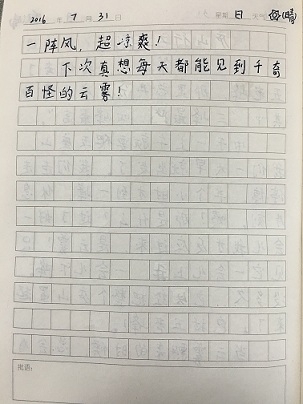 2016 年 7 月 31 日 星期 日 天气 晴
一阵风，超凉爽！
下次真想每天都能见到千奇
百怪的云雾！
批语：